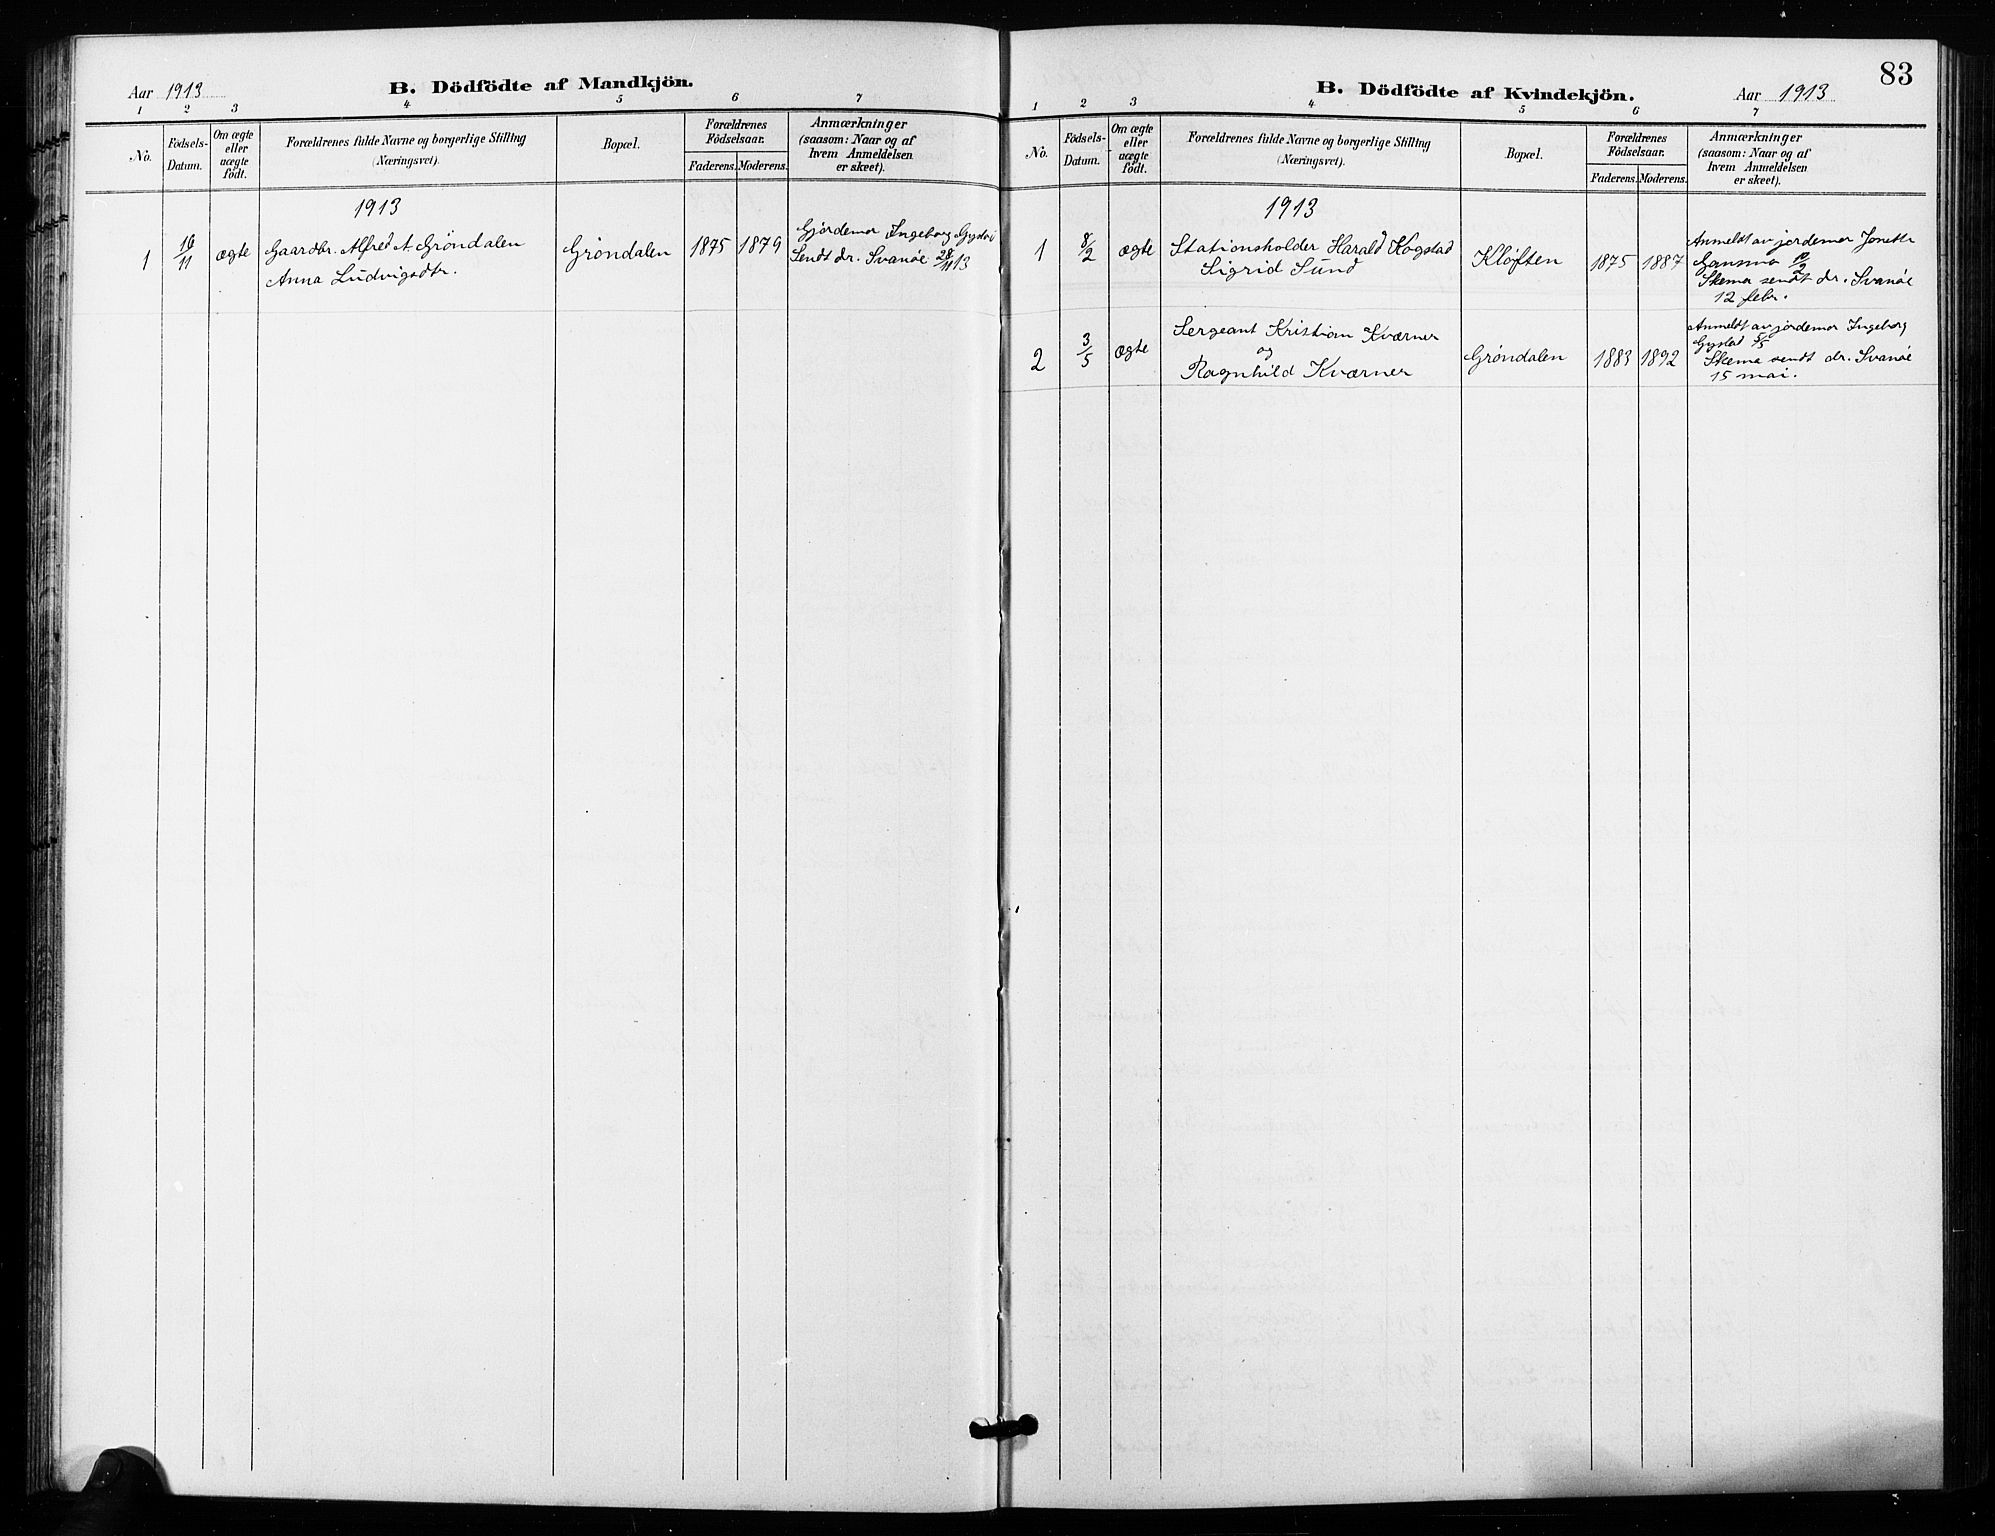 Aar 1913
B. Dödfödte af Mandkjön.
1 2 3 4 5 6 7
No.
Födsels-
Datum.
Om ægte
eller
uægte
födt.
Forældrenes fulde Navne og borgerlige Stilling
(Næringsvei).
Bopæl.
Forældrenes
Födselsaar.
Faderens. Moderens.
Anmærkninger
(saasom: Naar og af
hvem Anmeldelsen
er skeet).
1913
1 16/11 ægte Gaardbr. Alfred A. Gröndalen
Anna Ludvigsdtr.
Gröndalen 1875 1879
Gjordemor Ingeborg
Sendt dr. Svanøe 28/11 13
83
B. Dödfödte af Kvindekjön.
Aar 1913
1 2 3 4 5 6 7
No.
Födsels-
Datum.
Om ægte
eller
uægte
födt.
Forældrenes fulde Navne og borgerlige Stilling
(Næringsvei).
Bopæl.
Forældrenes
Födselsaar.
Faderens. Moderens.
Anmærkninger
(saasom: Naar og af
hvem Anmeldelsen
er skeet).
1913
1 8/2 ægte Stationsholder Harald Kogstad
Sigrid Sund
Kløften 1875 1887
Anmeldt av jordemor Jonette
Gansmo
Skema sendt dr. Svanøe
12 febr.
2 3/5 ægte Sergeant Kristian Kværner
og
Ragnhild Kværner
Grøndalen 1883 1892
Anmeldt av jordemor Ingeborg
Skema sendt dr. Svanøe
15 mai.